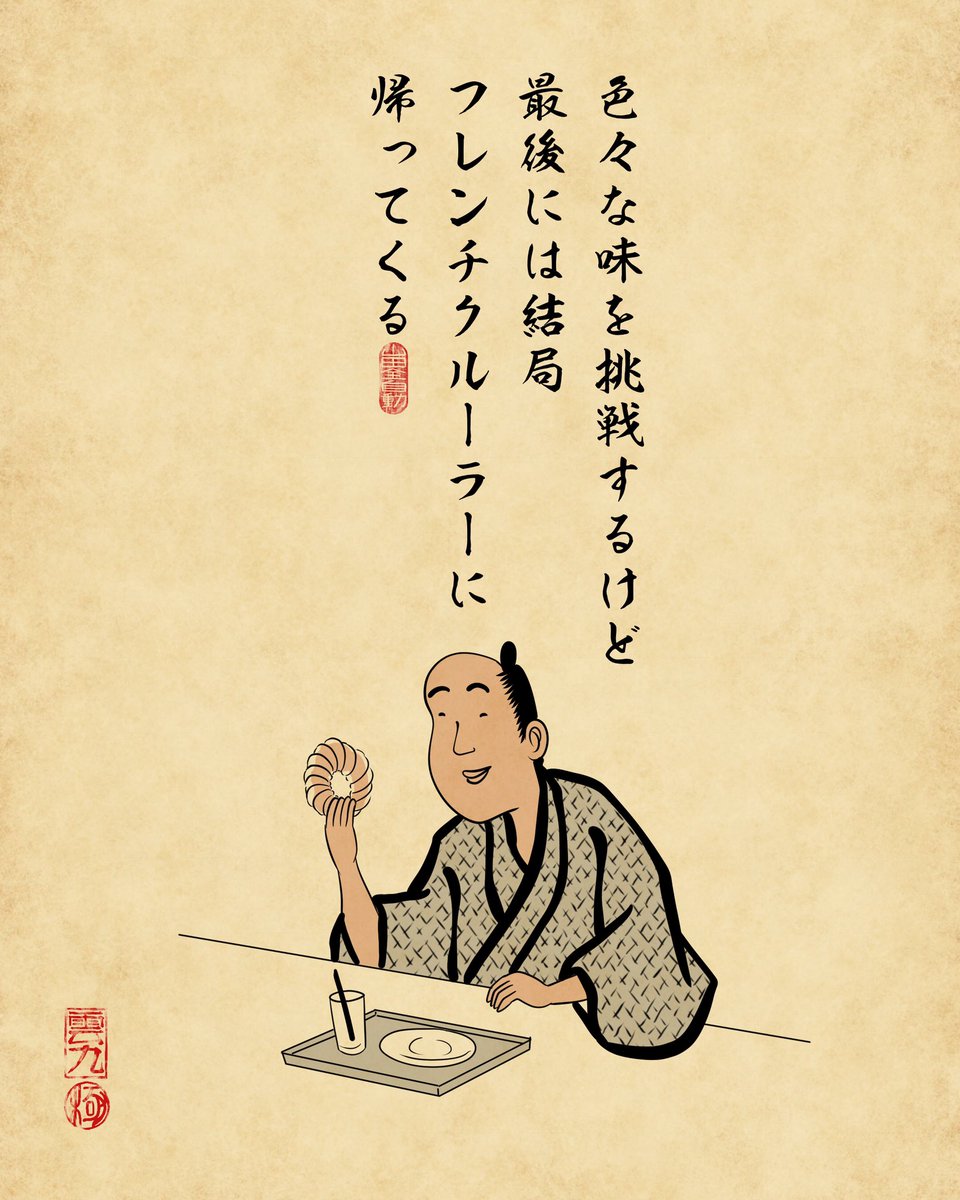 色々な味を挑戦するけど
最後には結局
フレンチクルーラーに
帰ってくる
山田全自動